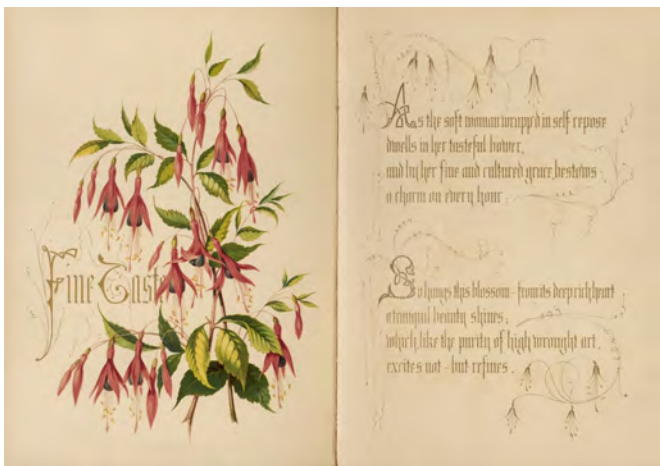 Fine Taste
As the soft woman wrapped in self repose
dwells in her tasteful bower,
and by her fine and cultured grace, bestows
a charm on every hour.
So hangs this blossom - from its deep rich heart
a tranquil beauty shines;
which, like the purity of high wrought art,
excites not - but refines.